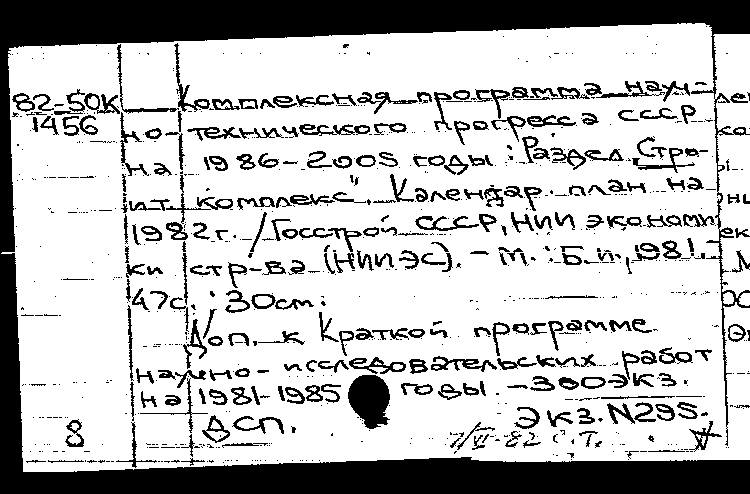 82-50К Комплексная программа науч-
1456 но-технического прогресса СССР
на 1986-2005 годы: Раздел "Стро-
ит. комплекс". Календар. план на
1982г. / Госстрой СССР, НИИ экономи
ки стр-ва (НИИЭС). - М.: Б.и., 1981. -
47с.; 30см.
Доп. к Краткой программе
научно-исследовательских работ
на 1981-1985 годы. - 300экз.
8 ДСП. Экз. N295.
7/VI-82 С.Т.